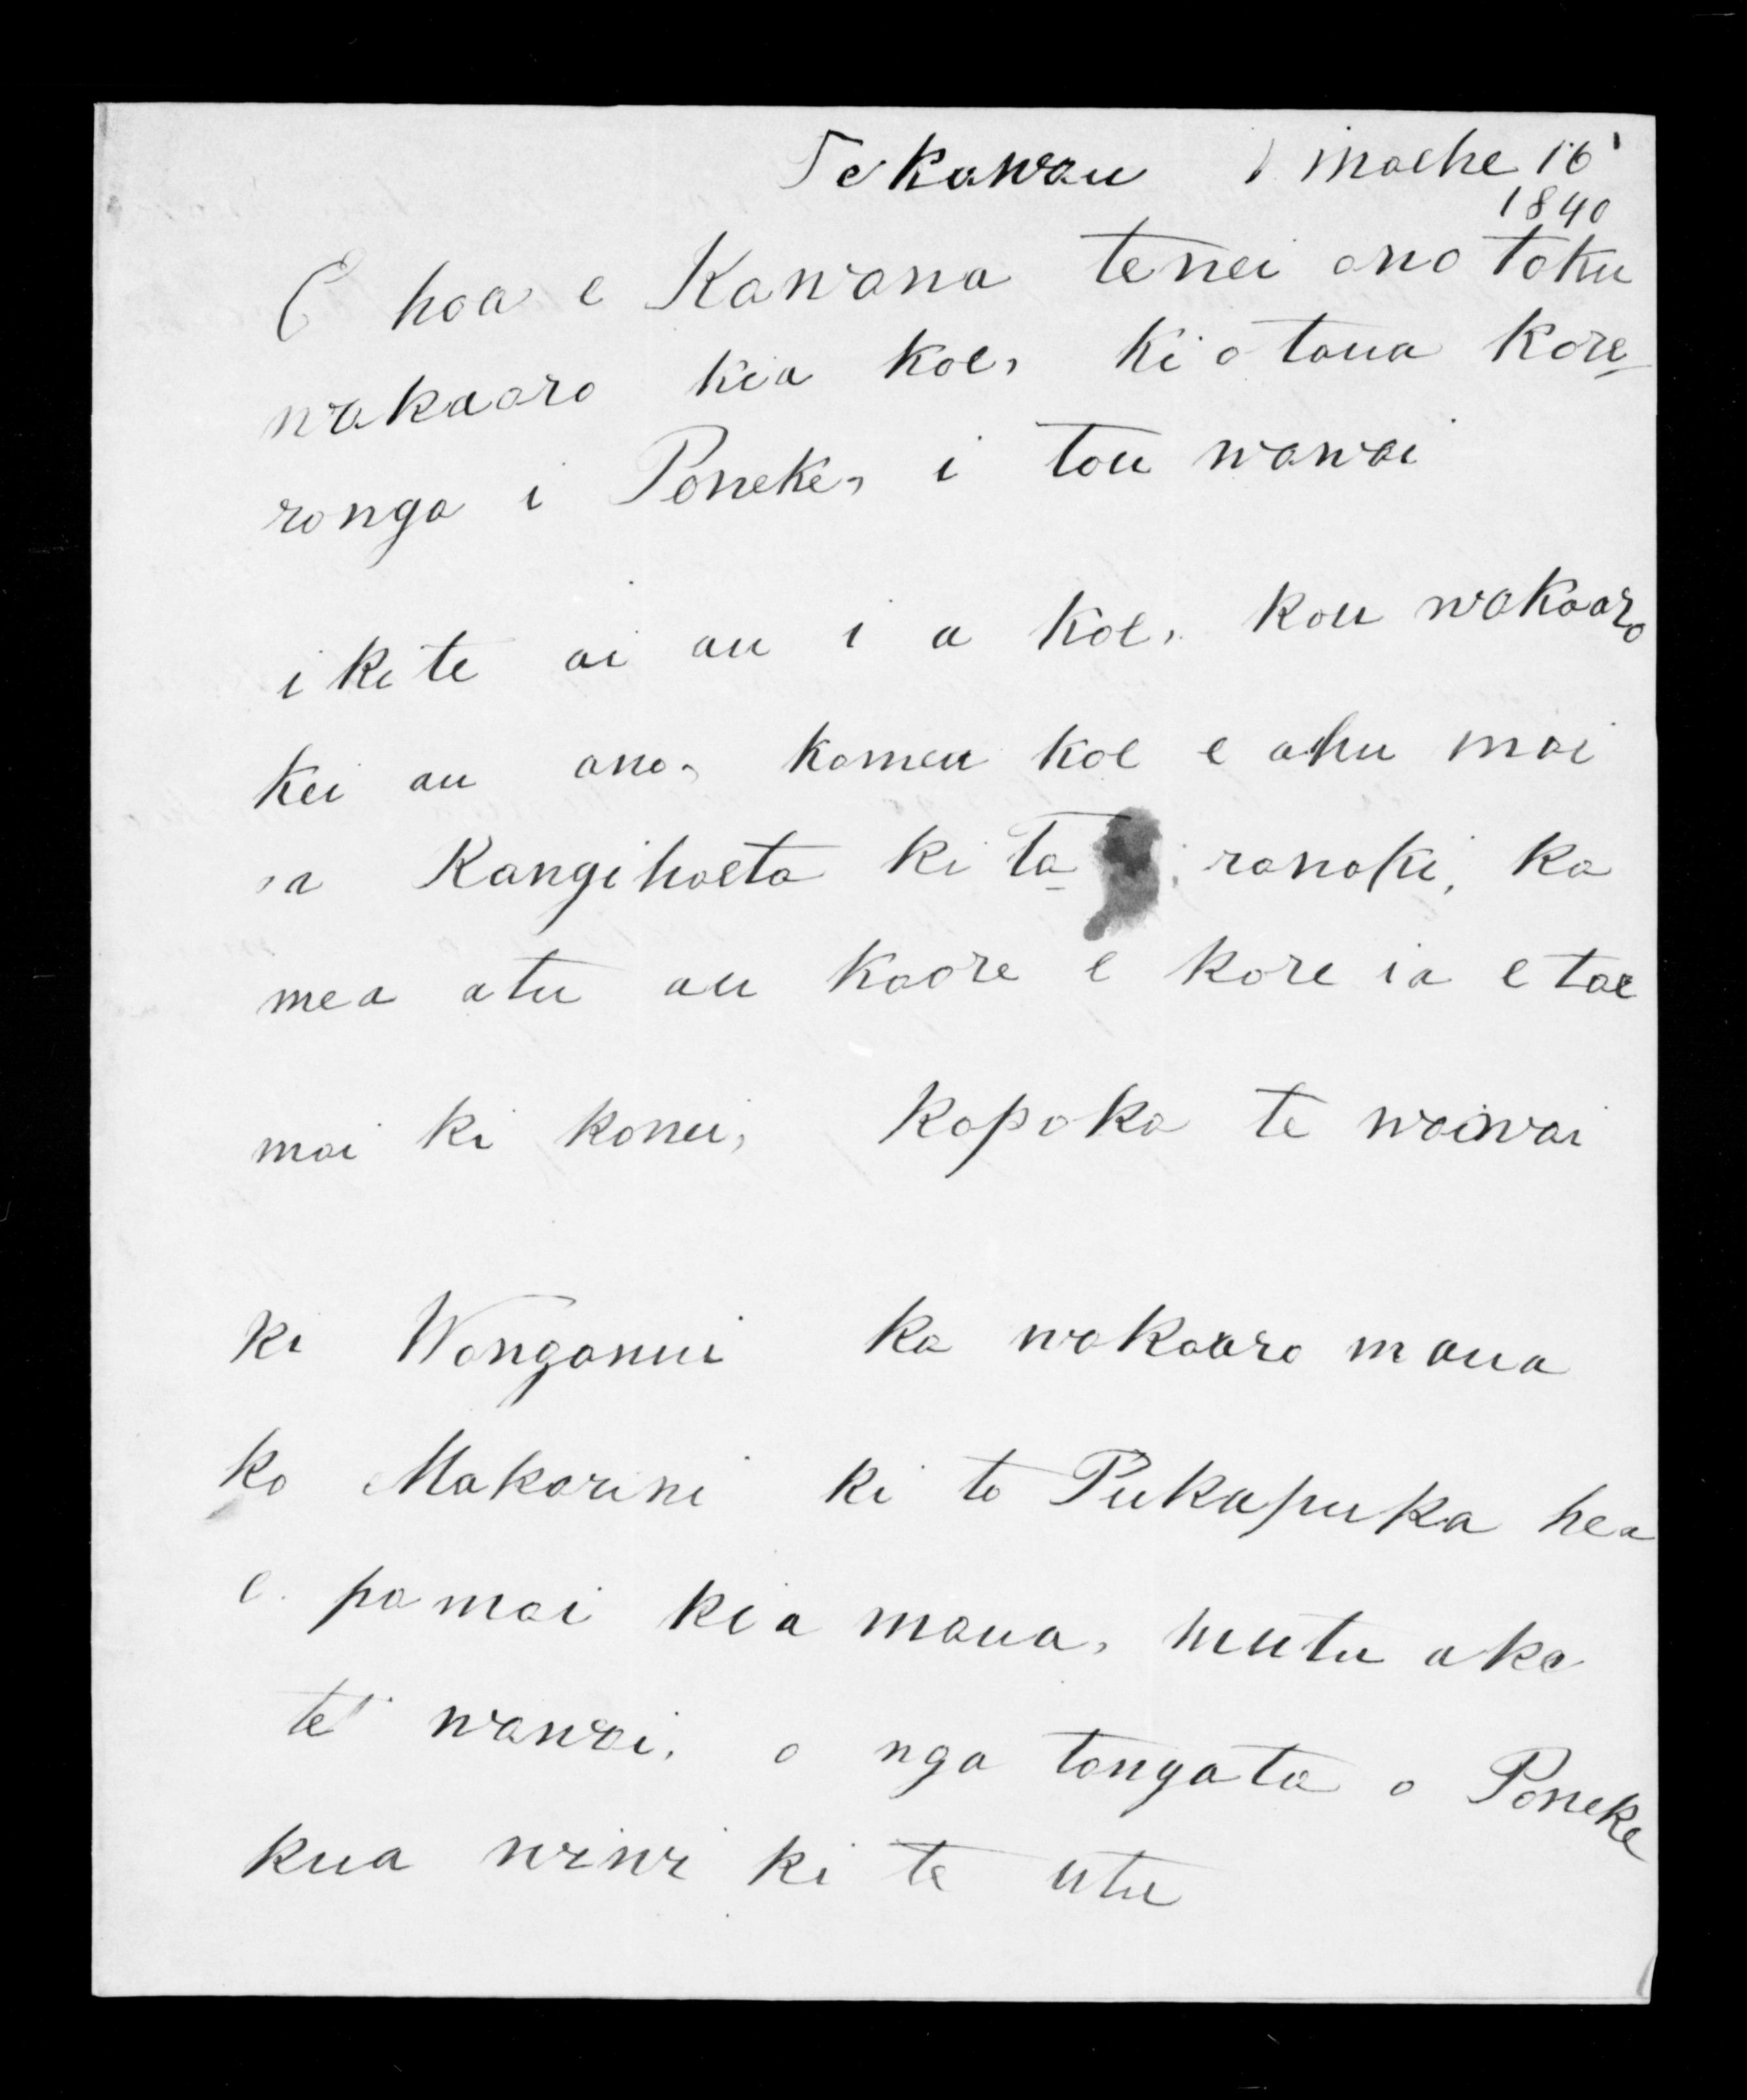 Te kawau maehe 16
1840
E hoa e Kawana tenei ano toku
wakaaro kia koe, ki o taua kore=
ronga i Poneke, i tou wawai
i kite ai au i a koe, kou wakaaro
kei au ano, kamea koe e ahu mai
ia Rangihaeta ki Ta ranaki, ka
mea atu au kaore e kore ia e tae
mai ki konei, kapoka te waiwai
ki Wanganui ka wakaaro maua
ko Makarini ki te Pukapuka hea
e pa mai kia maua, mutu aka
te wawai, o nga tangata o Poneke
kua wiwi ki te utu